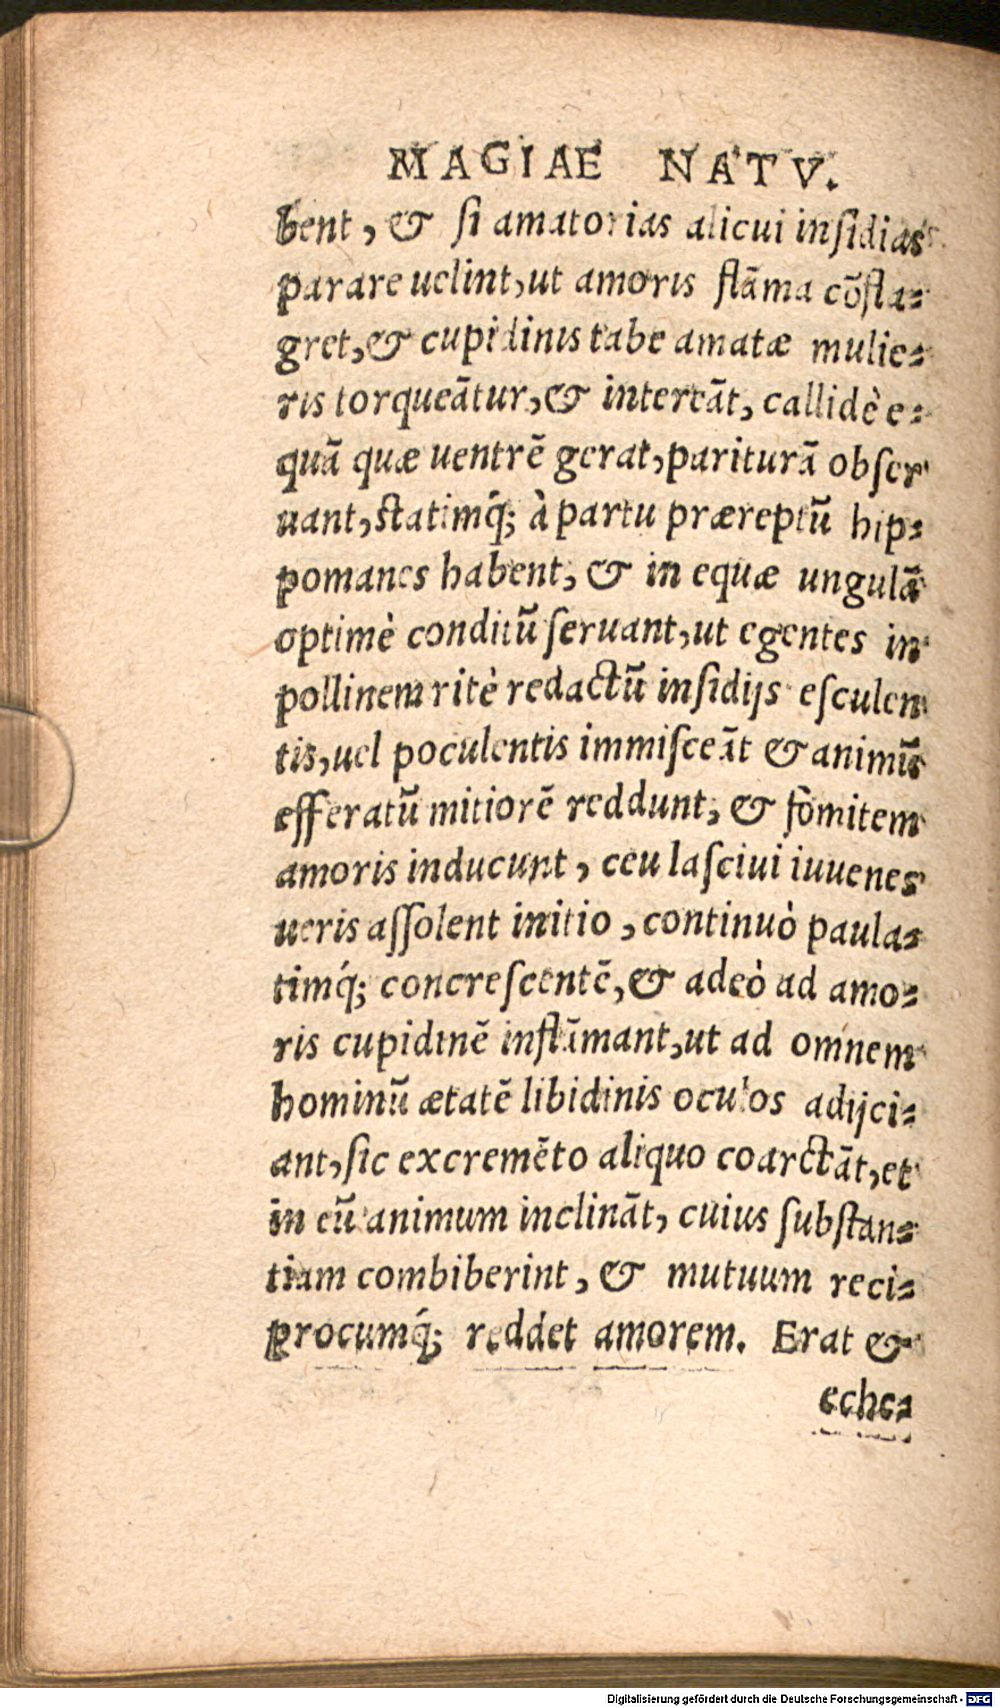 MAGIAE NATV.
bent, & ſi amatorias alicui inſidias
parare uelint, ut amoris flãma cõfla⸗
gret, & cupidinis tabe amatæ mulie⸗
ris torqueãtur, & intereãt, callidè e⸗
quã quæ uentrẽ gerat, pariturã obſer
uant, statimq́; à partu præreptũ hip⸗
pomanes habent, & in equæ ungulã
optimè conditũ ſeruant, ut egentes in
pollinem ritè redactũ inſidijs eſculen
tis, uel poculentis immiſceãt & animũ
efferatũ mitiorẽ reddunt, & fomitem
amoris inducunt, ceu laſciui iuuenes
ueris aſſolent initio, continuò paula⸗
timq́; concreſcentẽ, & adeò ad amo⸗
ris cupidinẽ inflãmant, ut ad omnem
hominũ ætatẽ libidinis oculos adijci⸗
ant, ſic excremẽto aliquo coarctãt, et
in eũ animum inclinãt, cuius ſubstan⸗
tiam combiberint, & mutuum reci⸗
procumq́; reddet amorem. Erat &
eche⸗
Digitalisierung gefördert durch die Deutsche Forschungsgemeinschaft - DFG